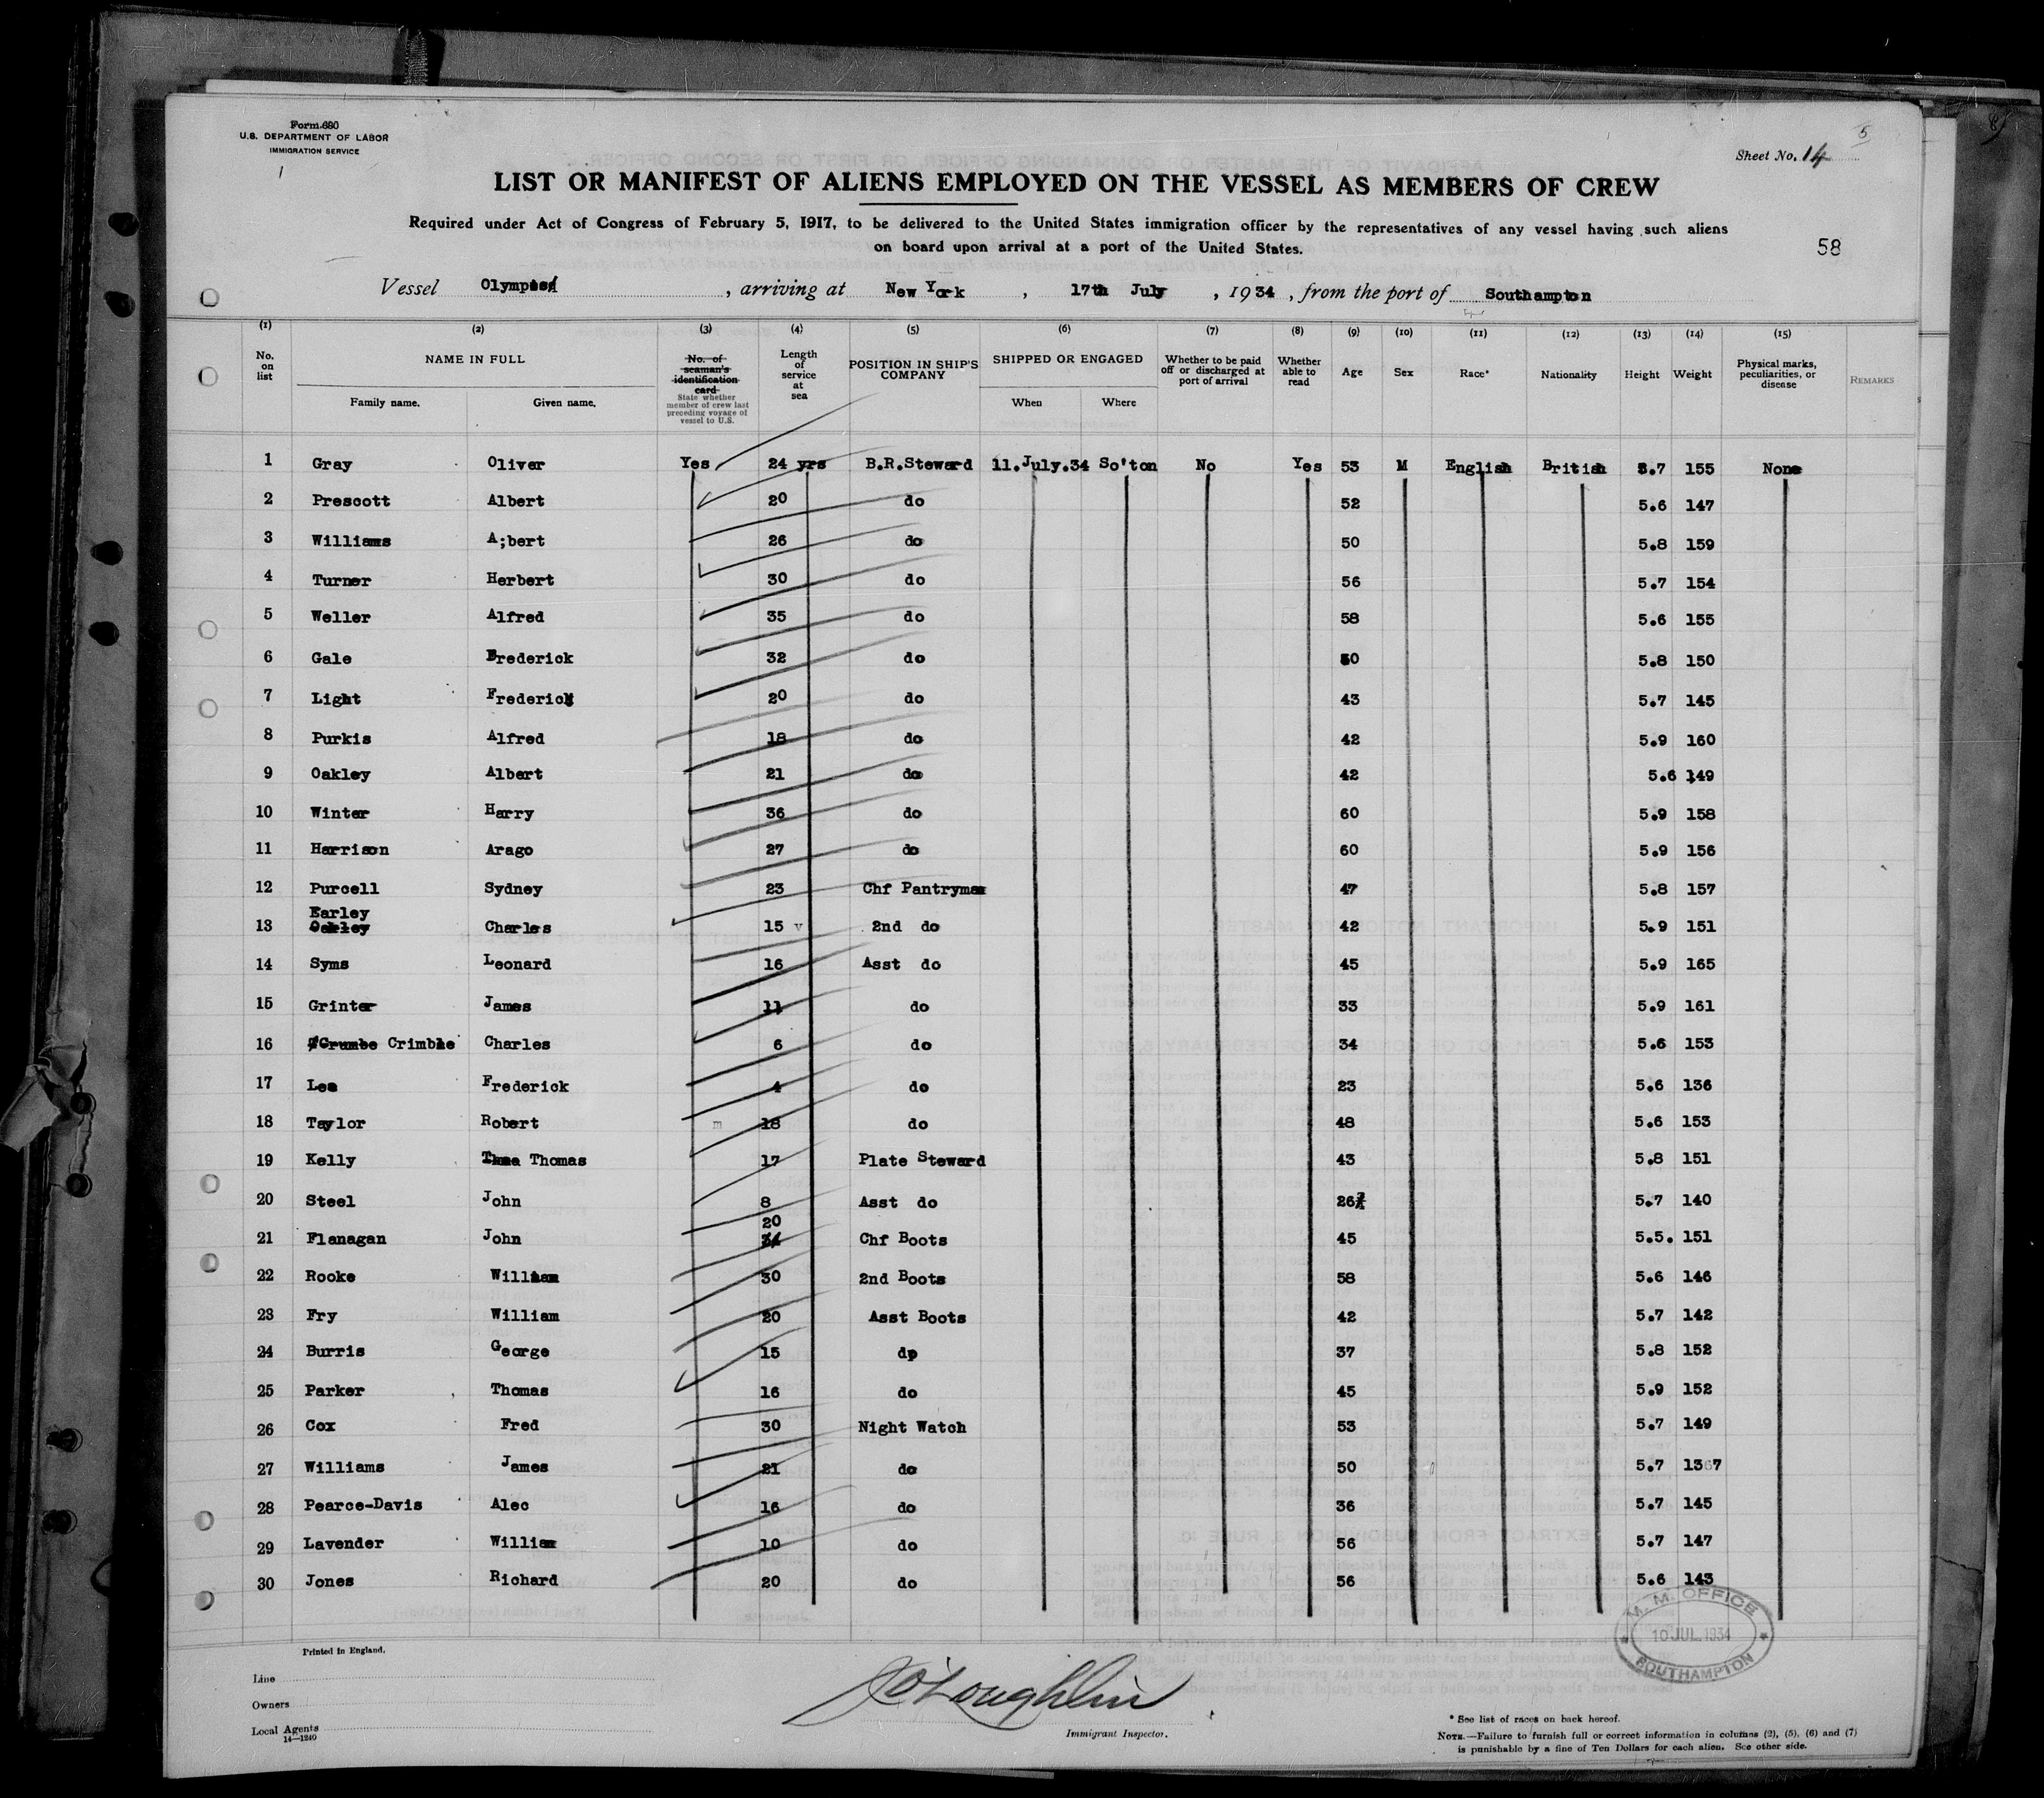 Form 680
U.S. DEPARTMENT OF LABOR
IMMIGRATION SERVICE
5
Sheet No. 14
LIST OR MANIFEST OF ALIENS EMPLOYED ON THE VESSEL AS MEMBERS OF CREW
Required under Act of Congress of February 5, 1917, to be delivered to the United States immigration officer by the representatives of any vessel having such aliens
on board upon arrival at a port of the United States.
58
Vessel Olympic, arriving at New York, 17th July, 1934, from the port of Southampton
(1) (2) (3) (4) (5) (6) (7) (8) (9) (10) (11) (12) (13) (14) (15)
No. on list NAME IN FULL Family name. Given name. No. of seaman's identification card State whether member of crew last preceding voyage of vessel to U.S. Length of service at sea POSITION IN SHIP'S COMPANY SHIPPED OR ENGAGED When Where Whether to be paid off or discharged at port of arrival Whether able to read Age Sex Race* Nationality Height Weight Physical marks, peculiarities, or disease REMARKS
1 Gray Oliver Yes 24 yrs B.R.Steward 11.July.34 So'ton No Yes 53 M English British 5.7 155 None
2 Prescott Albert 20 do 52 5.6 147
3 Williams A;bert 26 do 50 5.8 159
4 Turner Herbert 30 do 56 5.7 154
5 Weller Alfred 35 do 58 5.6 155
6 Gale Frederick 32 do 50 5.8 150
7 Light Frederick 20 do 43 5.7 145
8 Purkis Alfred 18 do 42 5.9 160
9 Oakley Albert 21 do 42 5.6 149
10 Winter Harry 36 do 60 5.9 158
11 Harrison Arago 27 do 60 5.9 156
12 Purcell Sydney 23 Chf Pantryman 47 5.8 157
Earley
13 Oakley Charles 15 v 2nd do 42 5.9 151
14 Syms Leonard 16 Asst do 45 5.9 165
15 Grinter James 11 do 33 5.9 161
16 Crumbe Crimble Charles 6 do 34 5.6 153
17 Lee Frederick 4 do 23 5.6 136
18 Taylor Robert m 18 do 48 5.6 153
19 Kelly Thomas 17 Plate Steward 43 5.8 151
20 Steel John 8 Asst do 26 5.7 140
20
21 Flanagan John Chf Boots 45 5.5. 151
22 Rooke William 30 2nd Boots 58 5.6 146
23 Fry William 20 Asst Boots 42 5.7 142
24 Burris George 15 dp 37 5.8 152
25 Parker Thomas 16 do 45 5.9 152
26 Cox Fred 30 Night Watch 53 5.7 149
27 Williams James 21 do 50 5.7 1367
28 Pearce-Davis Alec 16 do 36 5.7 145
29 Lavender William 10 do 56 5.7 147
30 Jones Richard 20 do 56 5.6 143
M. M. OFFICE
10 JUL 1934
SOUTHAMPTON
Printed in England.
Line
Owners
Local Agents
14—1240
J O'Loughlin
Immigrant Inspector.
* See list of races on back hereof.
NOTE.—Failure to furnish full or correct information in columns (2), (5), (6) and (7)
is punishable by a fine of Ten Dollars for each alien. See other side.